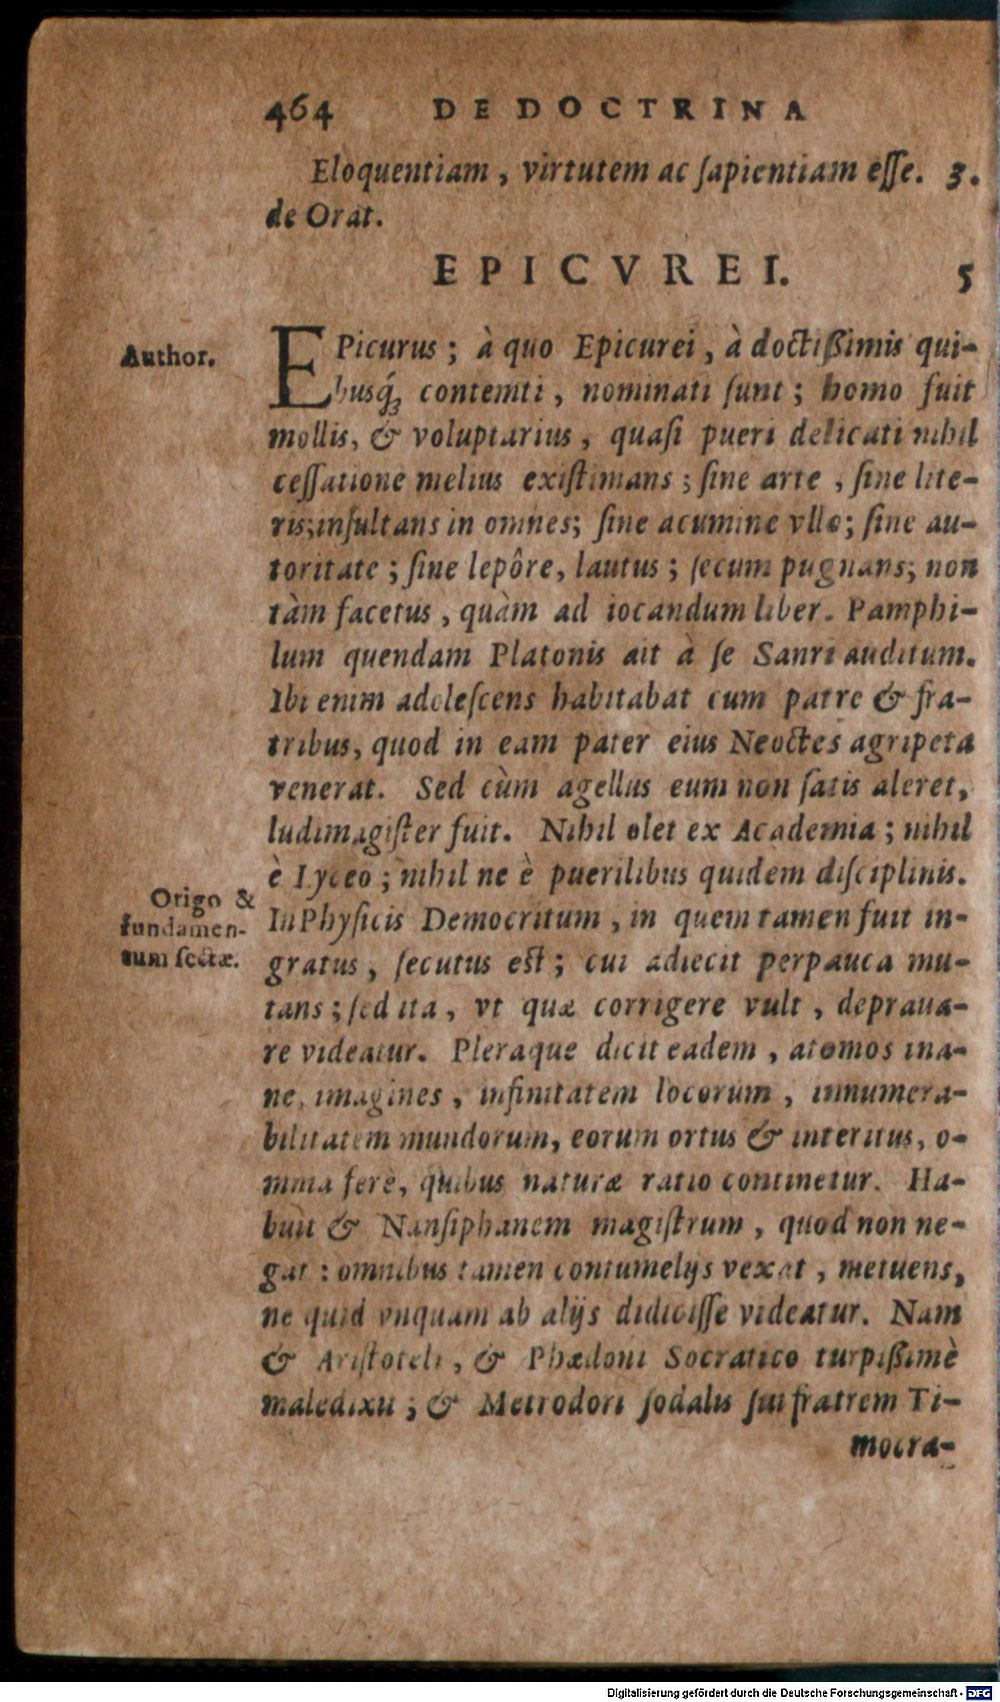 464 DE DOCTRINA
Eloquentiam, virtutem ac ſapientiam eſſe. 3.
de Orat.
EPICVREI. 5
Author.
EPicurus; à quo Epicurei, à doctißimis qui-
busq́; contemti, nominati ſunt; homo fuit
mollis, & voluptarius, quaſi pueri delicati nihil
ceſſatione melius exiſtimans; ſine arte, ſine lite-
ris; inſultans in omnes; ſine acumine vllo; ſine au-
toritate; ſine lepôre, lautus; ſecum pugnans; non
tàm facetus, quàm ad iocandum liber. Pamphi-
lum quendam Platonis ait à ſe Sanri auditum.
Ibi enim adoleſcens habitabat cum patre & fra-
tribus, quod in eam pater eius Neoctes agripeta
venerat. Sed cùm agellus eum non ſatis aleret,
ludimagiſter fuit. Nihil olet ex Academia; nihil
è Lyceo; nihil ne è puerilibus quidem diſciplinis.
Origo &
fundamen-
tum ſectæ.
In Phyſicis Democritum, in quem tamen fuit in-
gratus, ſecutus eſt; cui adiecit perpauca mu-
tans; ſed ita, vt quæ corrigere vult, depraua-
re videatur. Pleraque dicit eadem, atomos ina-
ne, imagines, infinitatem locorum, innumera-
bilitatem mundorum, eorum ortus & interitus, o-
mnia ferè, quibus naturæ ratio continetur. Ha-
buit & Nanſiphanem magiſtrum, quod non ne-
gat: omnibus tamen contumelijs vexat, metuens,
ne quid vnquam ab alijs didiciſſe videatur. Nam
& Ariſtoteli, & Phædoni Socratico turpißimè
maledixit; & Metrodori ſodalis ſui fratrem Ti-
mocra-
Digitalisierung gefördert durch die Deutsche Forschungsgemeinschaft - DFG